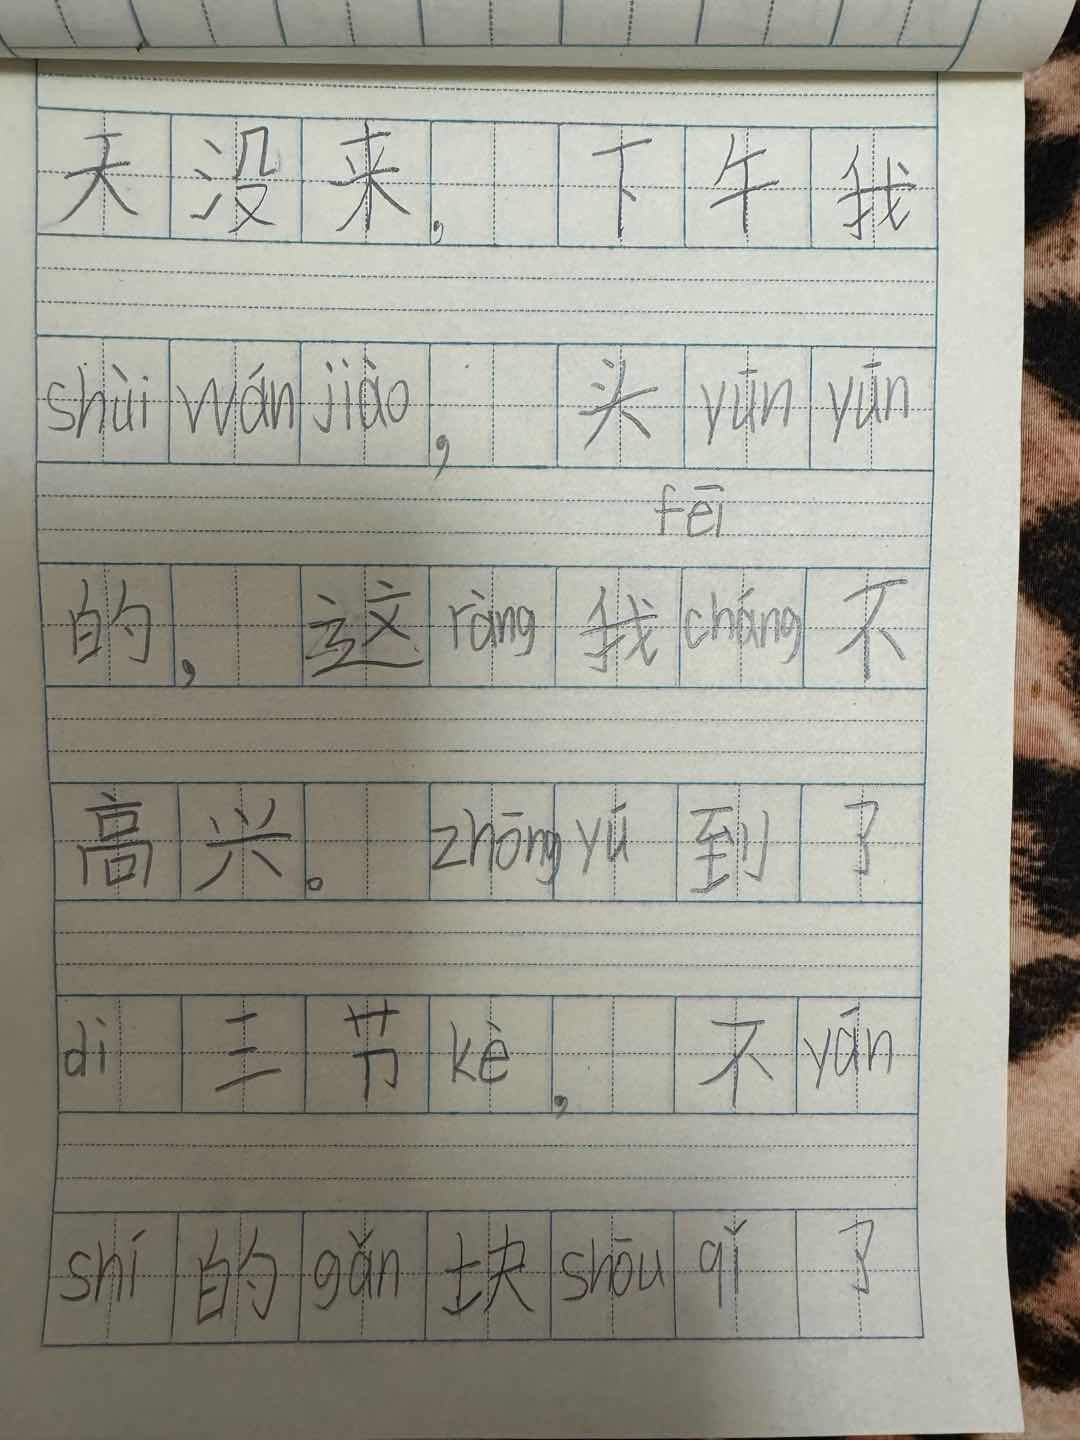 天没来，下午我
shùi wán jiào，头yūn yūn
fēi
的，这ràng我cháng不
高兴。zhōng yú到了
dì三节kè，不yán
shí的gǎn块shōu qǐ了